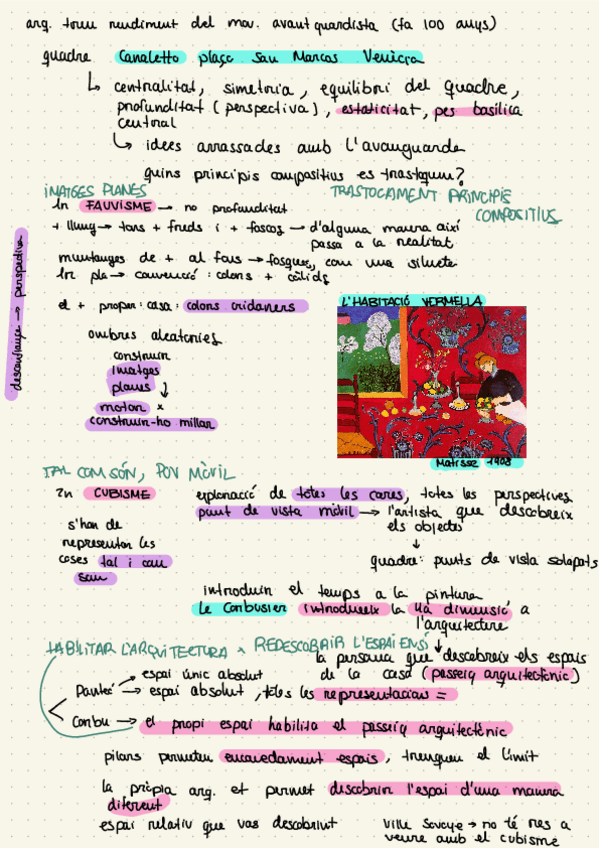 arq. treu rendiment del mov. avantguardista (fa 100 anys)
quadre Canaletto plaça San Marcos Venècia
↳ centralitat, simetria, equilibri del quadre,
profunditat (perspectiva), estaticitat, pes basílica
central
↳ idees arrassades amb l'avanguarda
quins principis compositius es trastoquen?
IMATGES PLANES
TRASTOCAMENT PRINCIPIS
COMPOSITIUS
1r FAUVISME → no profunditat
+ lluny → tons + freds i + foscos → d'alguna manera així
passa a la realitat
muntanyes de + al fons → fosques, com una silueta
1r pla → convenció: colors + càlids
el + proper: casa: colors cridaners
desconfiança → perspectiva
ombres aleatories
construir
imatges
planes
motor x
construir-ho millor
L'HABITACIÓ VERMELLA
Matisse 1908
TAL COM SÓN, POV MÒVIL
2n CUBISME
explanació de totes les cares, totes les perspectives
punt de vista mòbil → l'artista que descobreix
els objectes
s'han de
representar les
coses tal i com
son
↓
quadre: punts de vista solapats
introduir el temps a la pintura
le Corbusier introdueix la 4a dimensió a
l'arquitectura
HABILITAR L'ARQUITECTURA x REDESCOBRIR L'ESPAI ENSÍ
la persona que descobreix els espais
de la casa (passeig arquitectònic)
→ espai únic absolut
→ espai absolut, totes les representacions =
Corbu → el propi espai habilita el passeig arquitectònic
pilars permeten espais, trenquen el límit
la pròpia arq. et permet descobrir l'espai d'una manera
diferent
espai relatiu que vas descobrint
Ville Savoye → no té res a
veure amb el cubisme